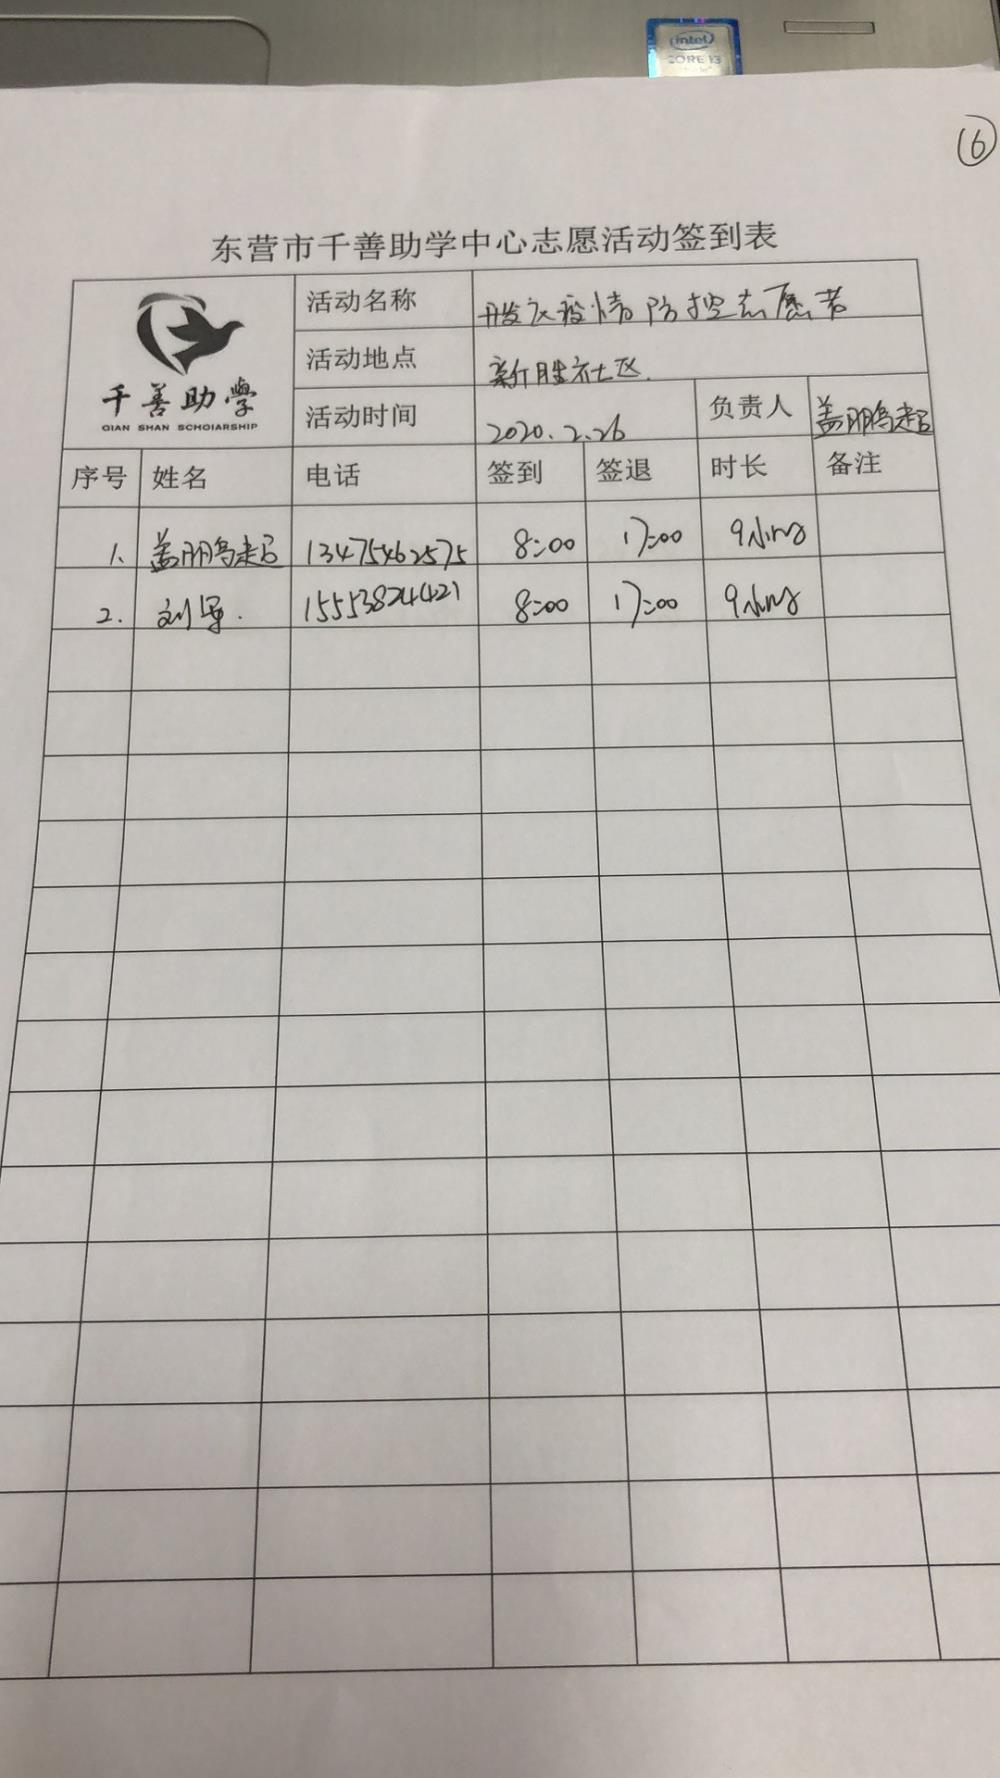 intel
CORE i3
⑥
东营市千善助学中心志愿活动签到表
千善助學
QIAN SHAN SCHOlARSHIP
活动名称 开发区疫情防控志愿者
活动地点 新胜社区
活动时间 2020.2.26 负责人 盖鹏超
序号 姓名 电话 签到 签退 时长 备注
1. 盖鹏超 13475462575 8:00 17:00 9小时
2. 刘军. 15553824421 8:00 17:00 9小时